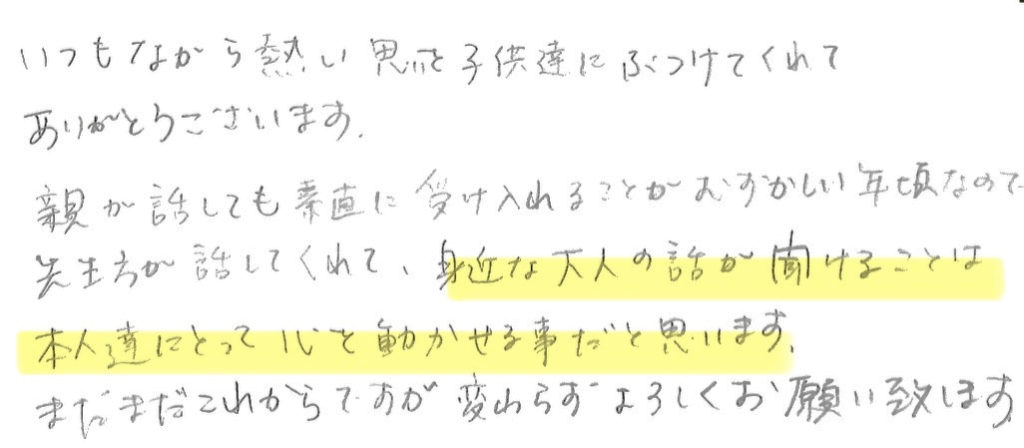 いつもながら熱い思いを子供達にぶつけてくれて
ありがとうございます。
親が話しても素直に受け入れることがむずかしい年頃なので
先生方が話してくれて、身近な大人の話が聞けることは
本人達にとって心を動かせる事だと思います。
まだまだこれからですが変わらずよろしくお願い致します。